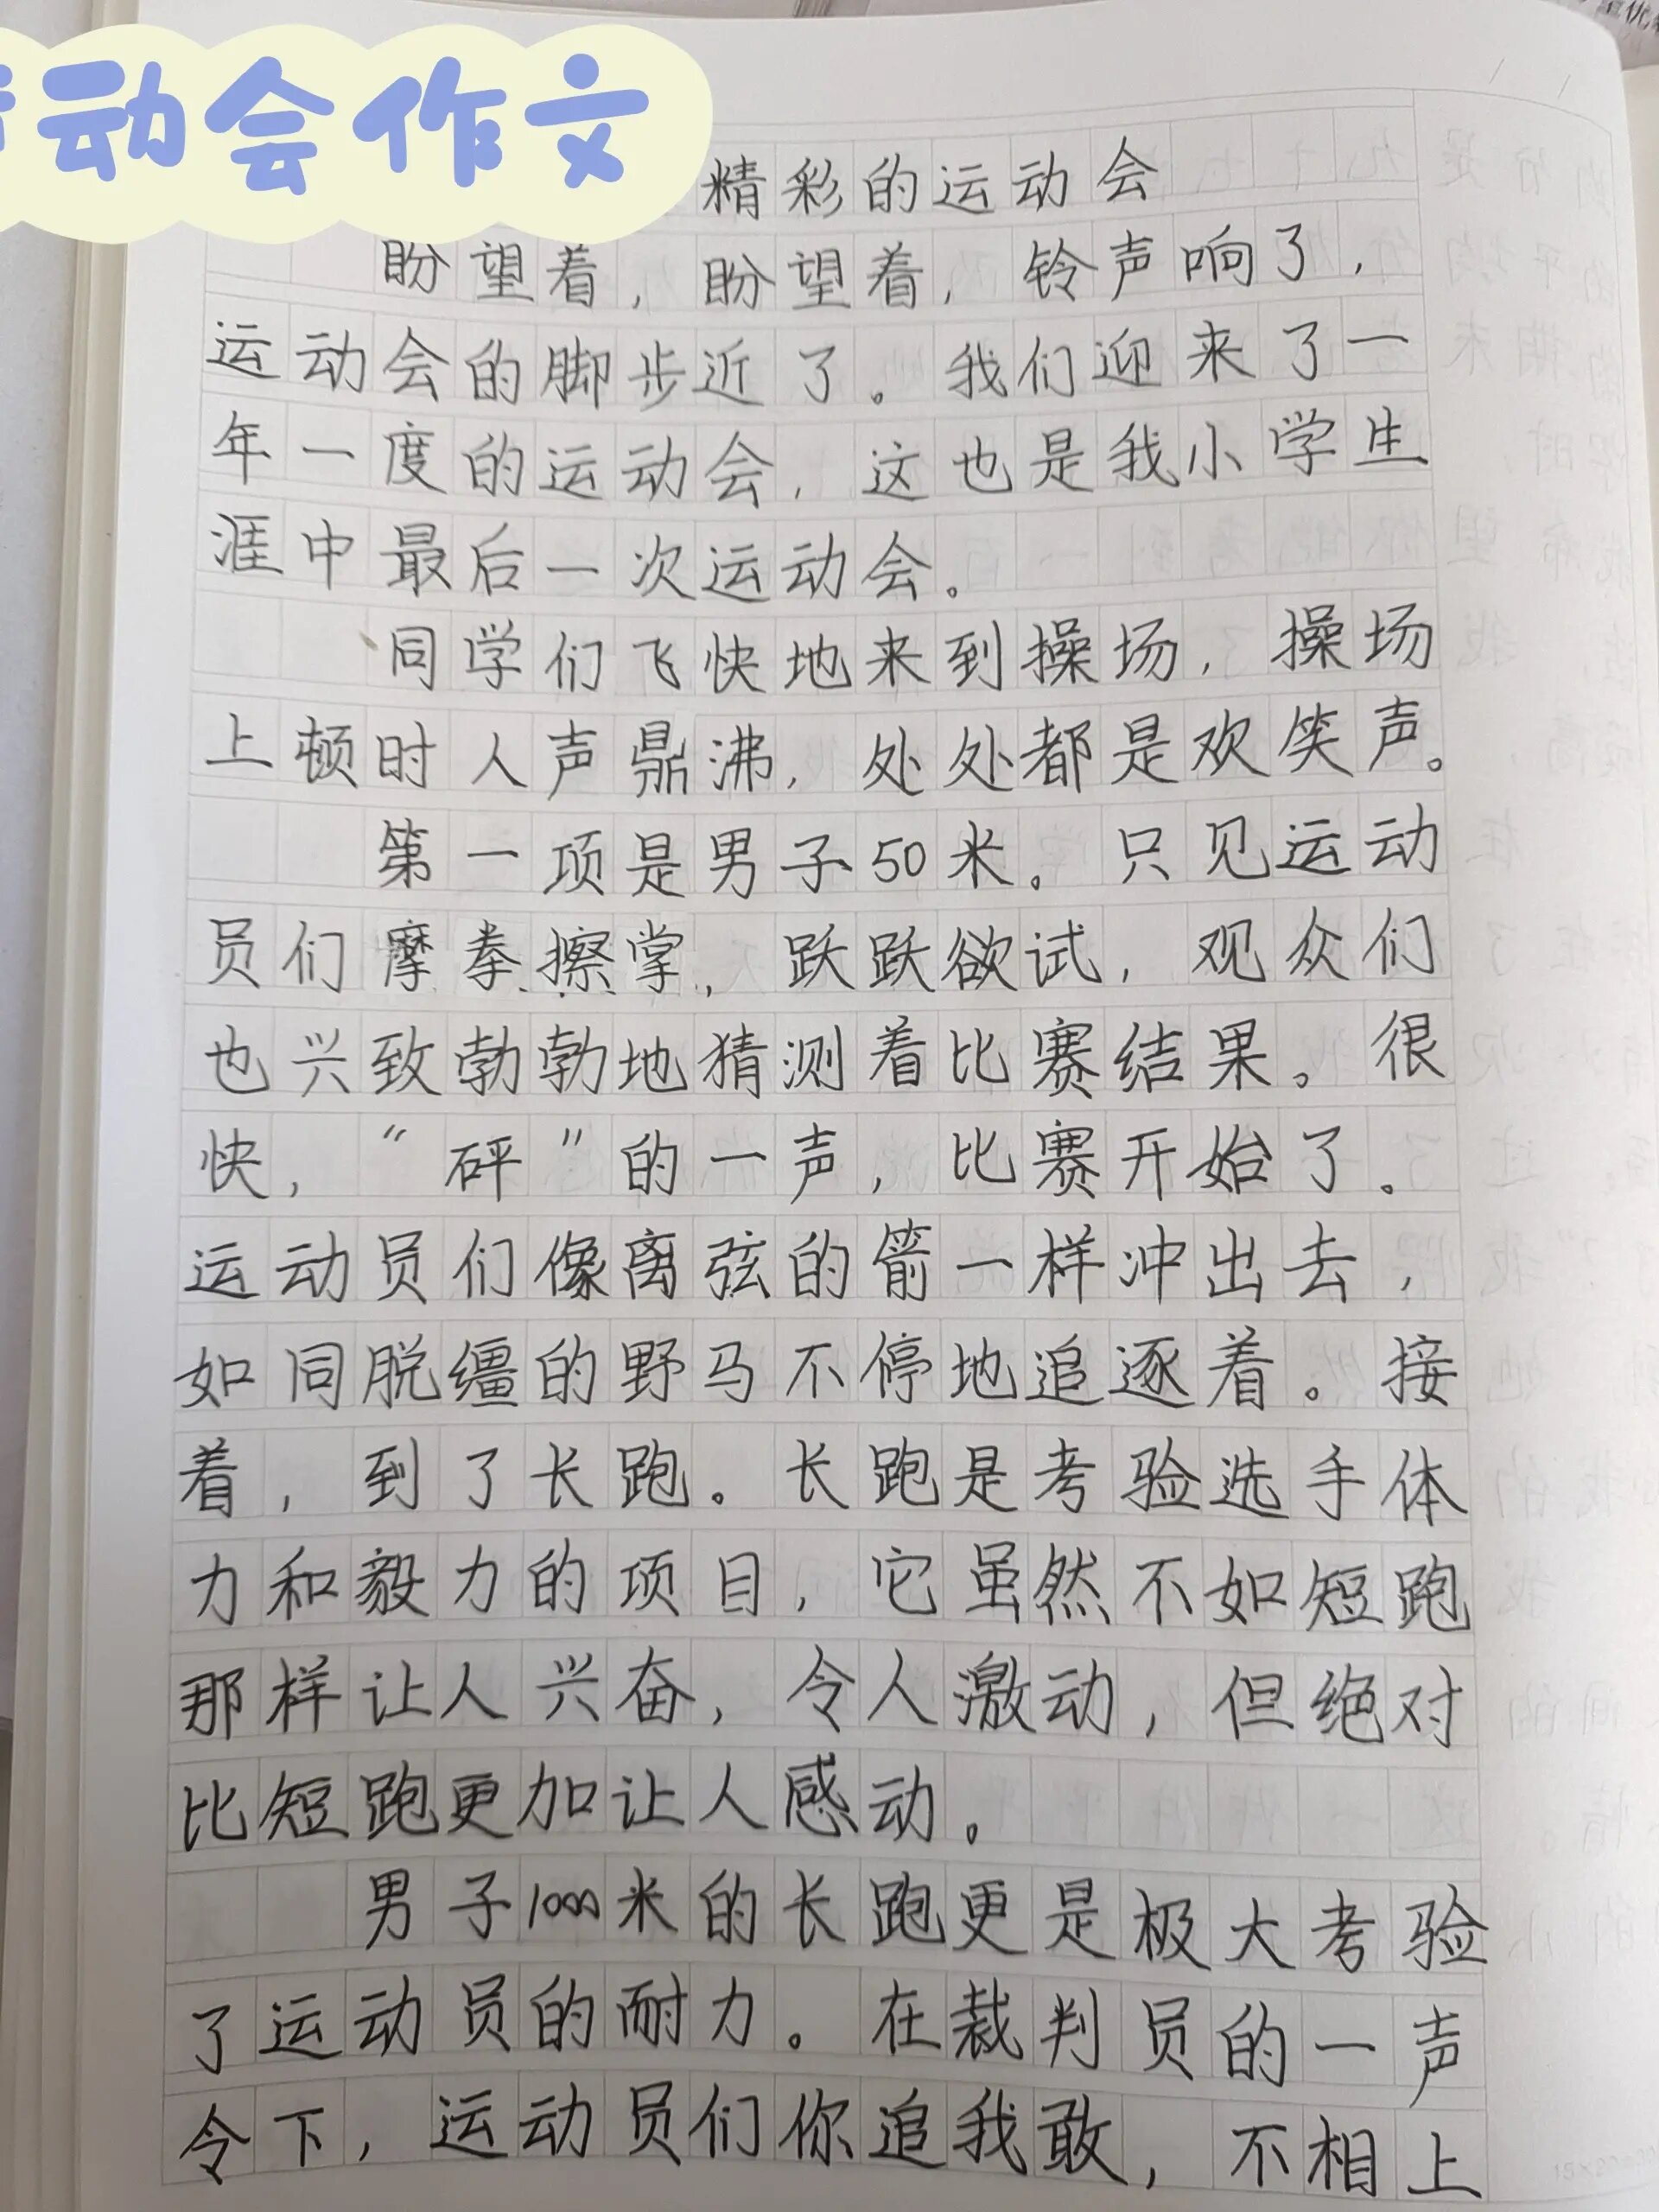 动会作文
精彩的运动会
盼望着，盼望着，铃声响了，
运动会的脚步近了。我们迎来了一
年一度的运动会，这也是我小学生
涯中最后一次运动会。
同学们飞快地来到操场，操场
上顿时人声鼎沸，处处都是欢笑声。
第一项是男子50米。只见运动
员们摩拳擦掌，跃跃欲试，观众们
也兴致勃勃地猜测着比赛结果。很
快，“砰”的一声，比赛开始了。
运动员们像离弦的箭一样冲出去，
如同脱缰的野马不停地追逐着。接
着，到了长跑。长跑是考验选手体
力和毅力的项目，它虽然不如短跑
那样让人兴奋，令人激动，但绝对
比短跑更加让人感动。
男子1000米的长跑更是极大考验
了运动员的耐力。在裁判员的一声
令下，运动员们你追我敢，不相上